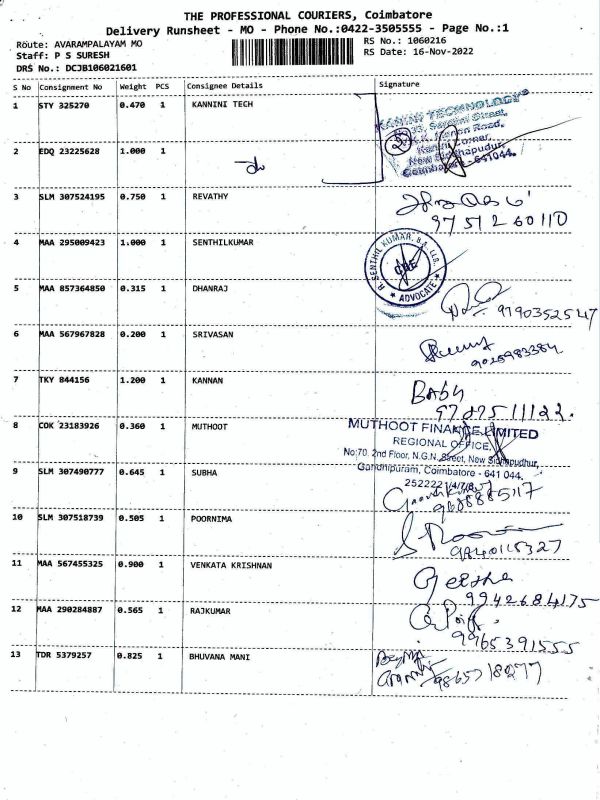 THE PROFESSIONAL COURIERS, Coimbatore
Delivery Runsheet - MO - Phone No.:0422-3505555 - Page No.:1
Route: AVARAMPALAYAM MO
RS No.: 1060216
Staff: P S SURESH
RS Date: 16-Nov-2022
DRS No.: DCJB106021601
S No Consignment No Weight PCS Consignee Details Signature
1 STY 325270 0.470 1 KANNINI TECH
2 EDQ 23225628 1.000 1
New Siddhapudur,
Coimbatore - 641044.
3 SLM 307524195 0.750 1 REVATHY
9751260110
4 MAA 295009423 1.000 1 SENTHILKUMAR
R. SENTHIL KUMAR, B.A., LL.B.
ADVOCATE
5 MAA 857364850 0.315 1 DHANRAJ
9790352547
6 MAA 567967828 0.200 1 SRIVASAN
7 TKY 844156 1.200 1 KANNAN
Baby
8 COK 23183926 0.360 1 MUTHOOT
MUTHOOT FINANCE LIMITED
REGIONAL OFFICE,
No:70, 2nd Floor, N.G.N. Street, New Sidhapudhur,
Gandhipuram, Coimbatore - 641 044.
9 SLM 307490777 0.645 1 SUBHA
10 SLM 307518739 0.505 1 POORNIMA
9840115327
11 MAA 567455325 0.900 1 VENKATA KRISHNAN
9942684175
12 MAA 290284887 0.565 1 RAJKUMAR
9965391555
13 TDR 5379257 0.825 1 BHUVANA MANI
9865718277